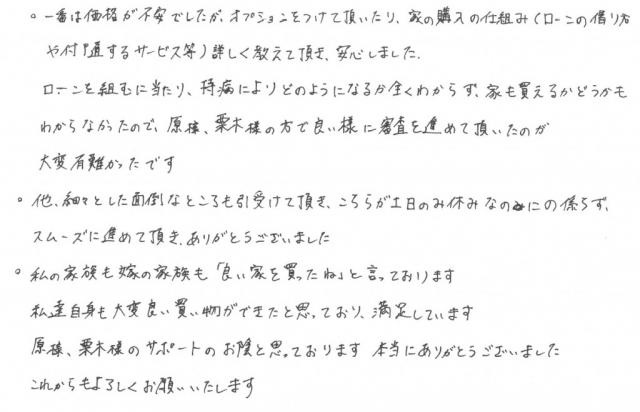 。一番は価格が不安でしたが、オプションをつけて頂いたり、家の購入の仕組み(ローンの借り方
や付随するサービス等)詳しく教えて頂き、安心しました.
ローンを組むに当たり、持病によりどのようになるか全くわからず、家も買えるかどうかも
わからなかったので、原様、栗木様の方で良い様に審査を進めて頂いたのが
大変有難かったです
。他、細々とした面倒なところも引受けて頂き、こちらが土日のみ休みなのにの係らず、
スムーズに進めて頂き、ありがとうございました
。私の家族も嫁の家族も「良い家を買ったね」と言っております
私達自身も大変良い買い物ができたと思っており、満足しています
原様、栗木様のサポートのお陰と思っております 本当にありがとうございました
これからもよろしくお願いいたします